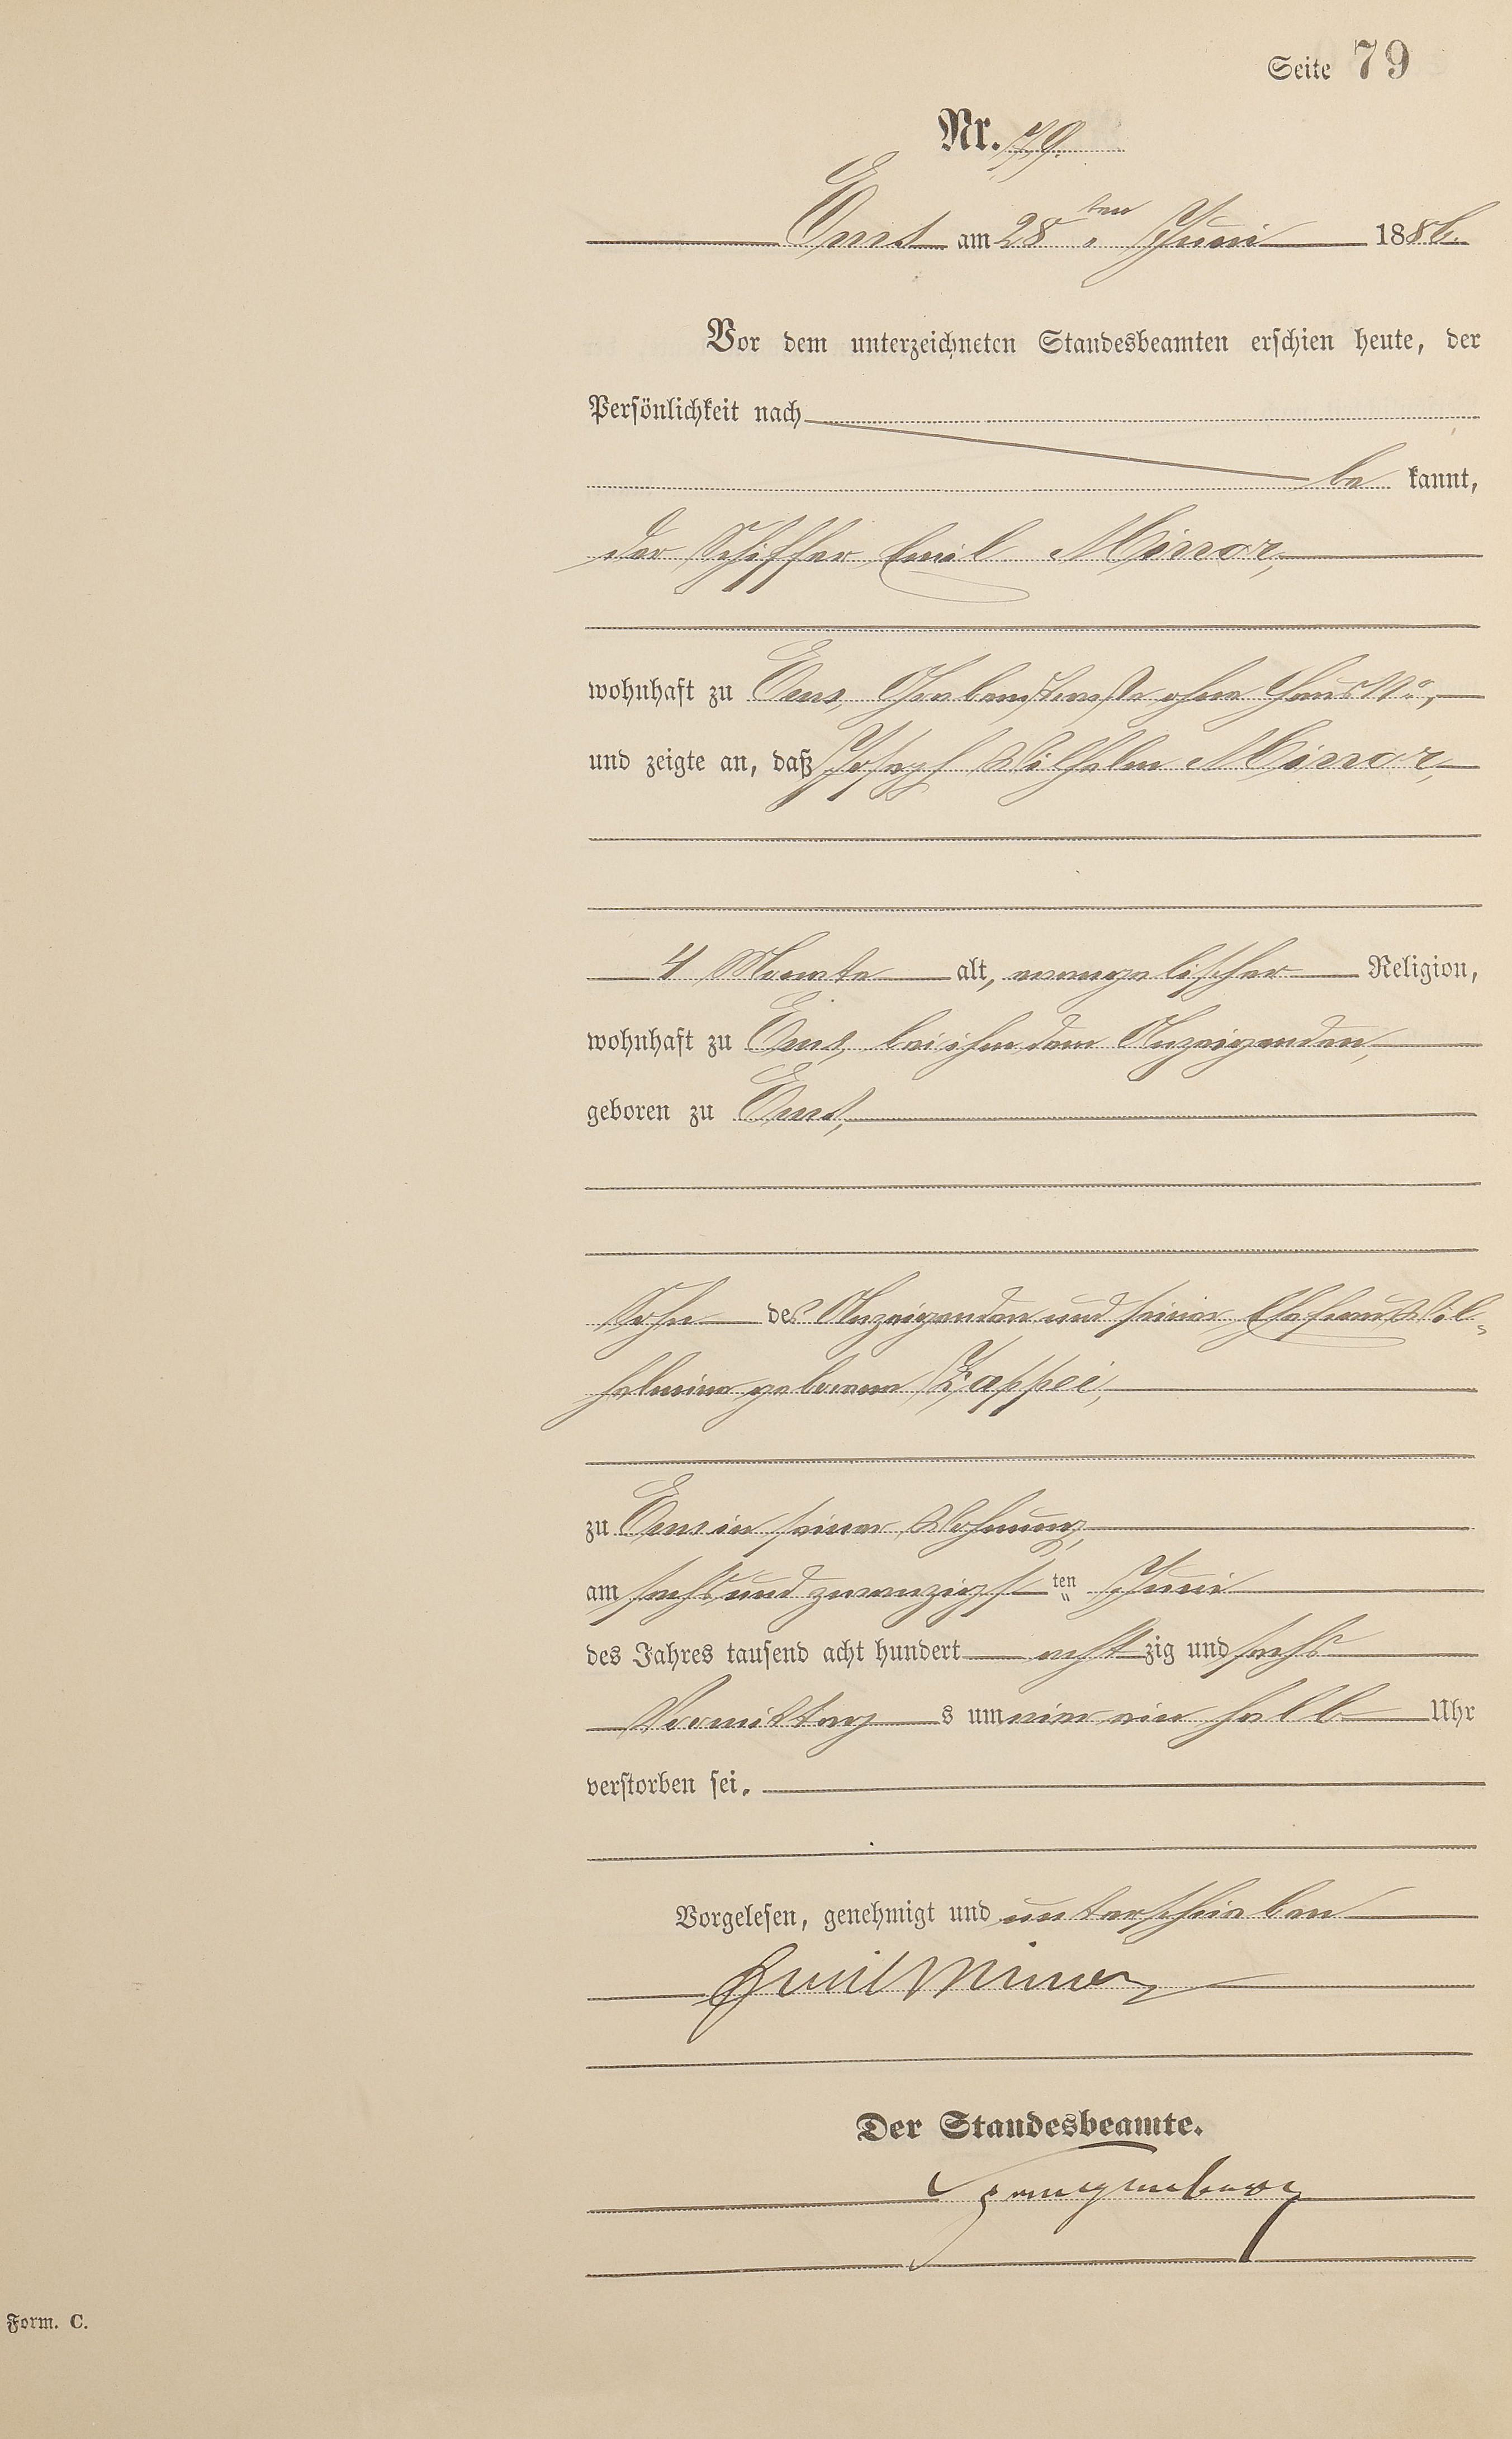 Seite 79
Nr. 79.
Ems am 28 ten Juni 1886.
Vor dem unterzeichneten Standesbeamten erschien heute, der
Persönlichkeit nach
be kannt,
der Schiffer Emil Minor,
wohnhaft zu Ems, ohne Haus No,
und zeigte an, daß Joseph Wilhelm Minor,
4 Monate alt, evangelischer Religion,
wohnhaft zu Ems, bei ihm dem Anzeigenden,
geboren zu Ems,
Sohn des Anzeigenden und seiner Ehefrau Wil-
helmine geborene Zappei,
zu Ems in seiner Wohnung,
am sechs und zwanzigst ten Juni
des Jahres tausend acht hundert acht zig und sechs
Vormittag s um ein halb Uhr
verstorben sei.
Vorgelesen, genehmigt und unterschrieben
Emil Minor
Der Standesbeamte.
Form. C.